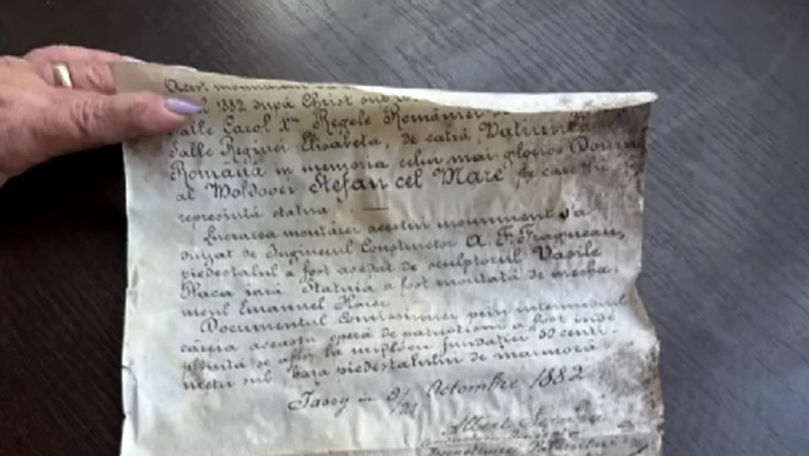 Acest monument
1882 după Christ sub
Salle Carol Iⁱᵘ Regele României
Salle Reginei Elisabeta, de catră Națiunea
Română in memoria celui mai glorios Domn
al Moldovei Stefan cel Mare pe care îl
represintă statua. —
Lucrarea montărei acestui monument s'a
dirijat de Inginerul Constructor A. F. Fragneau,
piedestalul a fost așeḑat de sculptorul Vasile
Placa iară Statuia a fost montată de mecha-
nicul Emanuel
Documentul Comissiunei prin intermediul
căreia această operă de patriotism a fost inde-
plinită se află la mijlocu fundației 50 centi-
metri sub baza piedestalului de marmoră
Jassy in 9/21 Octombre 1882
Albert